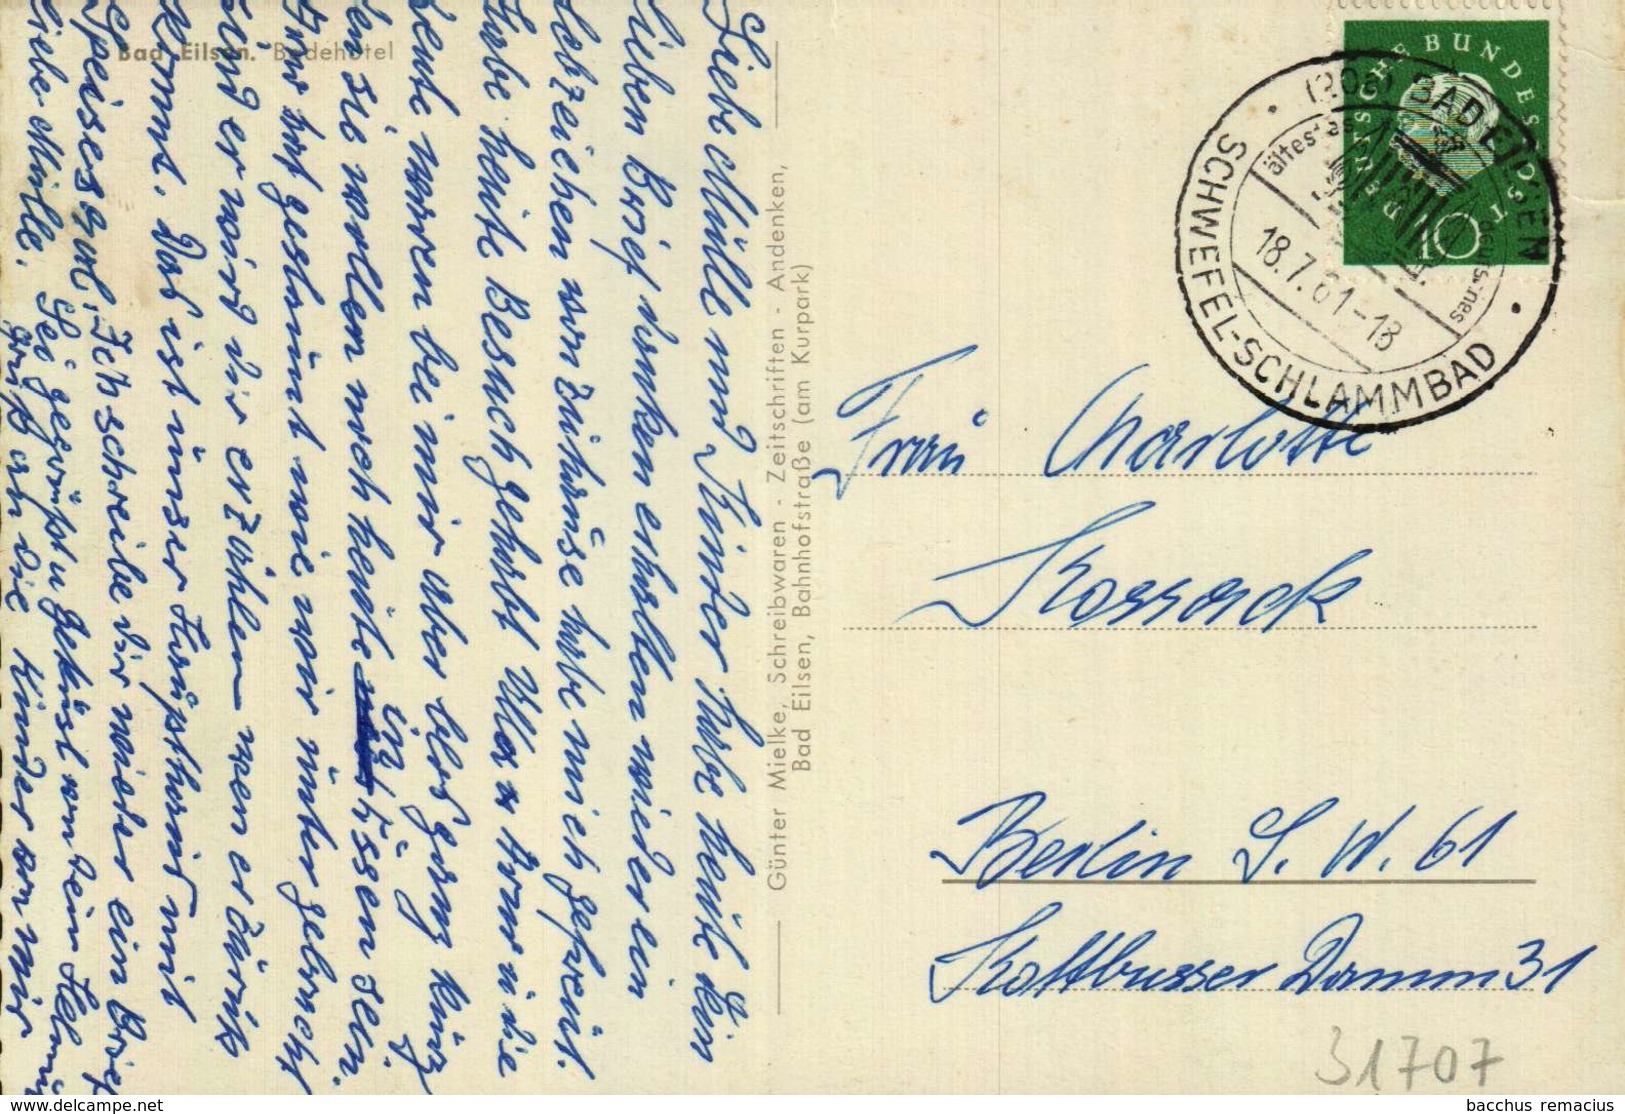 Bad Eilsen. Badehotel
Liebe Mülle und Kinder habe heute dein
lieben Brief danken erhalten wieder ein
Lebzeichen von Zuhause habe mich gefreut.
Habe heute Besuch gehabt Ulla u die
Leute waren bei mir aber blos ganz kurz
sie wollen noch heute in
hat gestaunt wie wir untergebracht
sind er wird dir erzählen wen er zurück
kommt. Das ist unser Haupthaus mit
Speisesaal. Ich schreibe dir wieder ein Brief
liebe Mülle. Sei gegrüßt u geküßt von dein Helmut
Grüß an die Kinder von mir
Günter Mielke, Schreibwaren - Zeitschriften - Andenken,
Bad Eilsen, Bahnhofstraße (am Kurpark)
DEUTSCHE BUNDESPOST
10
BAD EILSEN
ältestes
18.7.61-18
SCHWEFEL-SCHLAMMBAD
Frau Charlotte
Kossack
Berlin S. W. 61
Kottbusser Damm 31
31707
delcampe.net
bacchus remacius